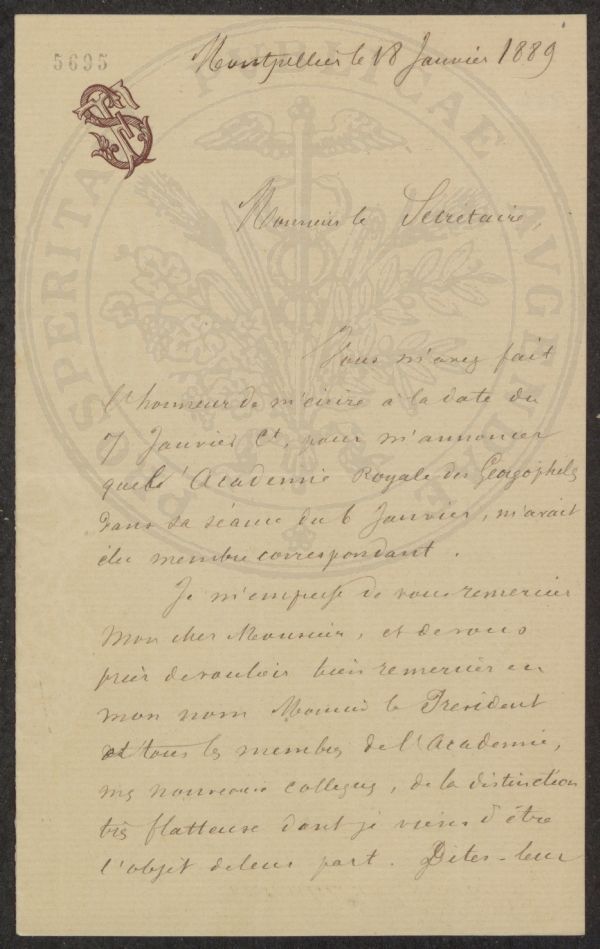 5695
Montpellier le 18 Janvier 1889
Monsieur le Secrétaire,
Vous m'avez fait
l'honneur de m'écrire à la date du
7 Janvier Ct, pour m'annoncer
que l'Academie Royale des Georgophiles
dans sa séance du 6 Janvier, m'avait
élu membre correspondant.
Je m'empresse de vous remercier
Mon cher Monsieur, et de vous
prier de vouloir bien remercier en
mon nom Monsieur le President
et tous les membres de l'Academie,
mes nouveaux collegues, de la distinction
très flatteuse dont je viens d'être
l'objet de leur part. Dites-leur
PROSPERITATI PUBLICAE AVGENDAE